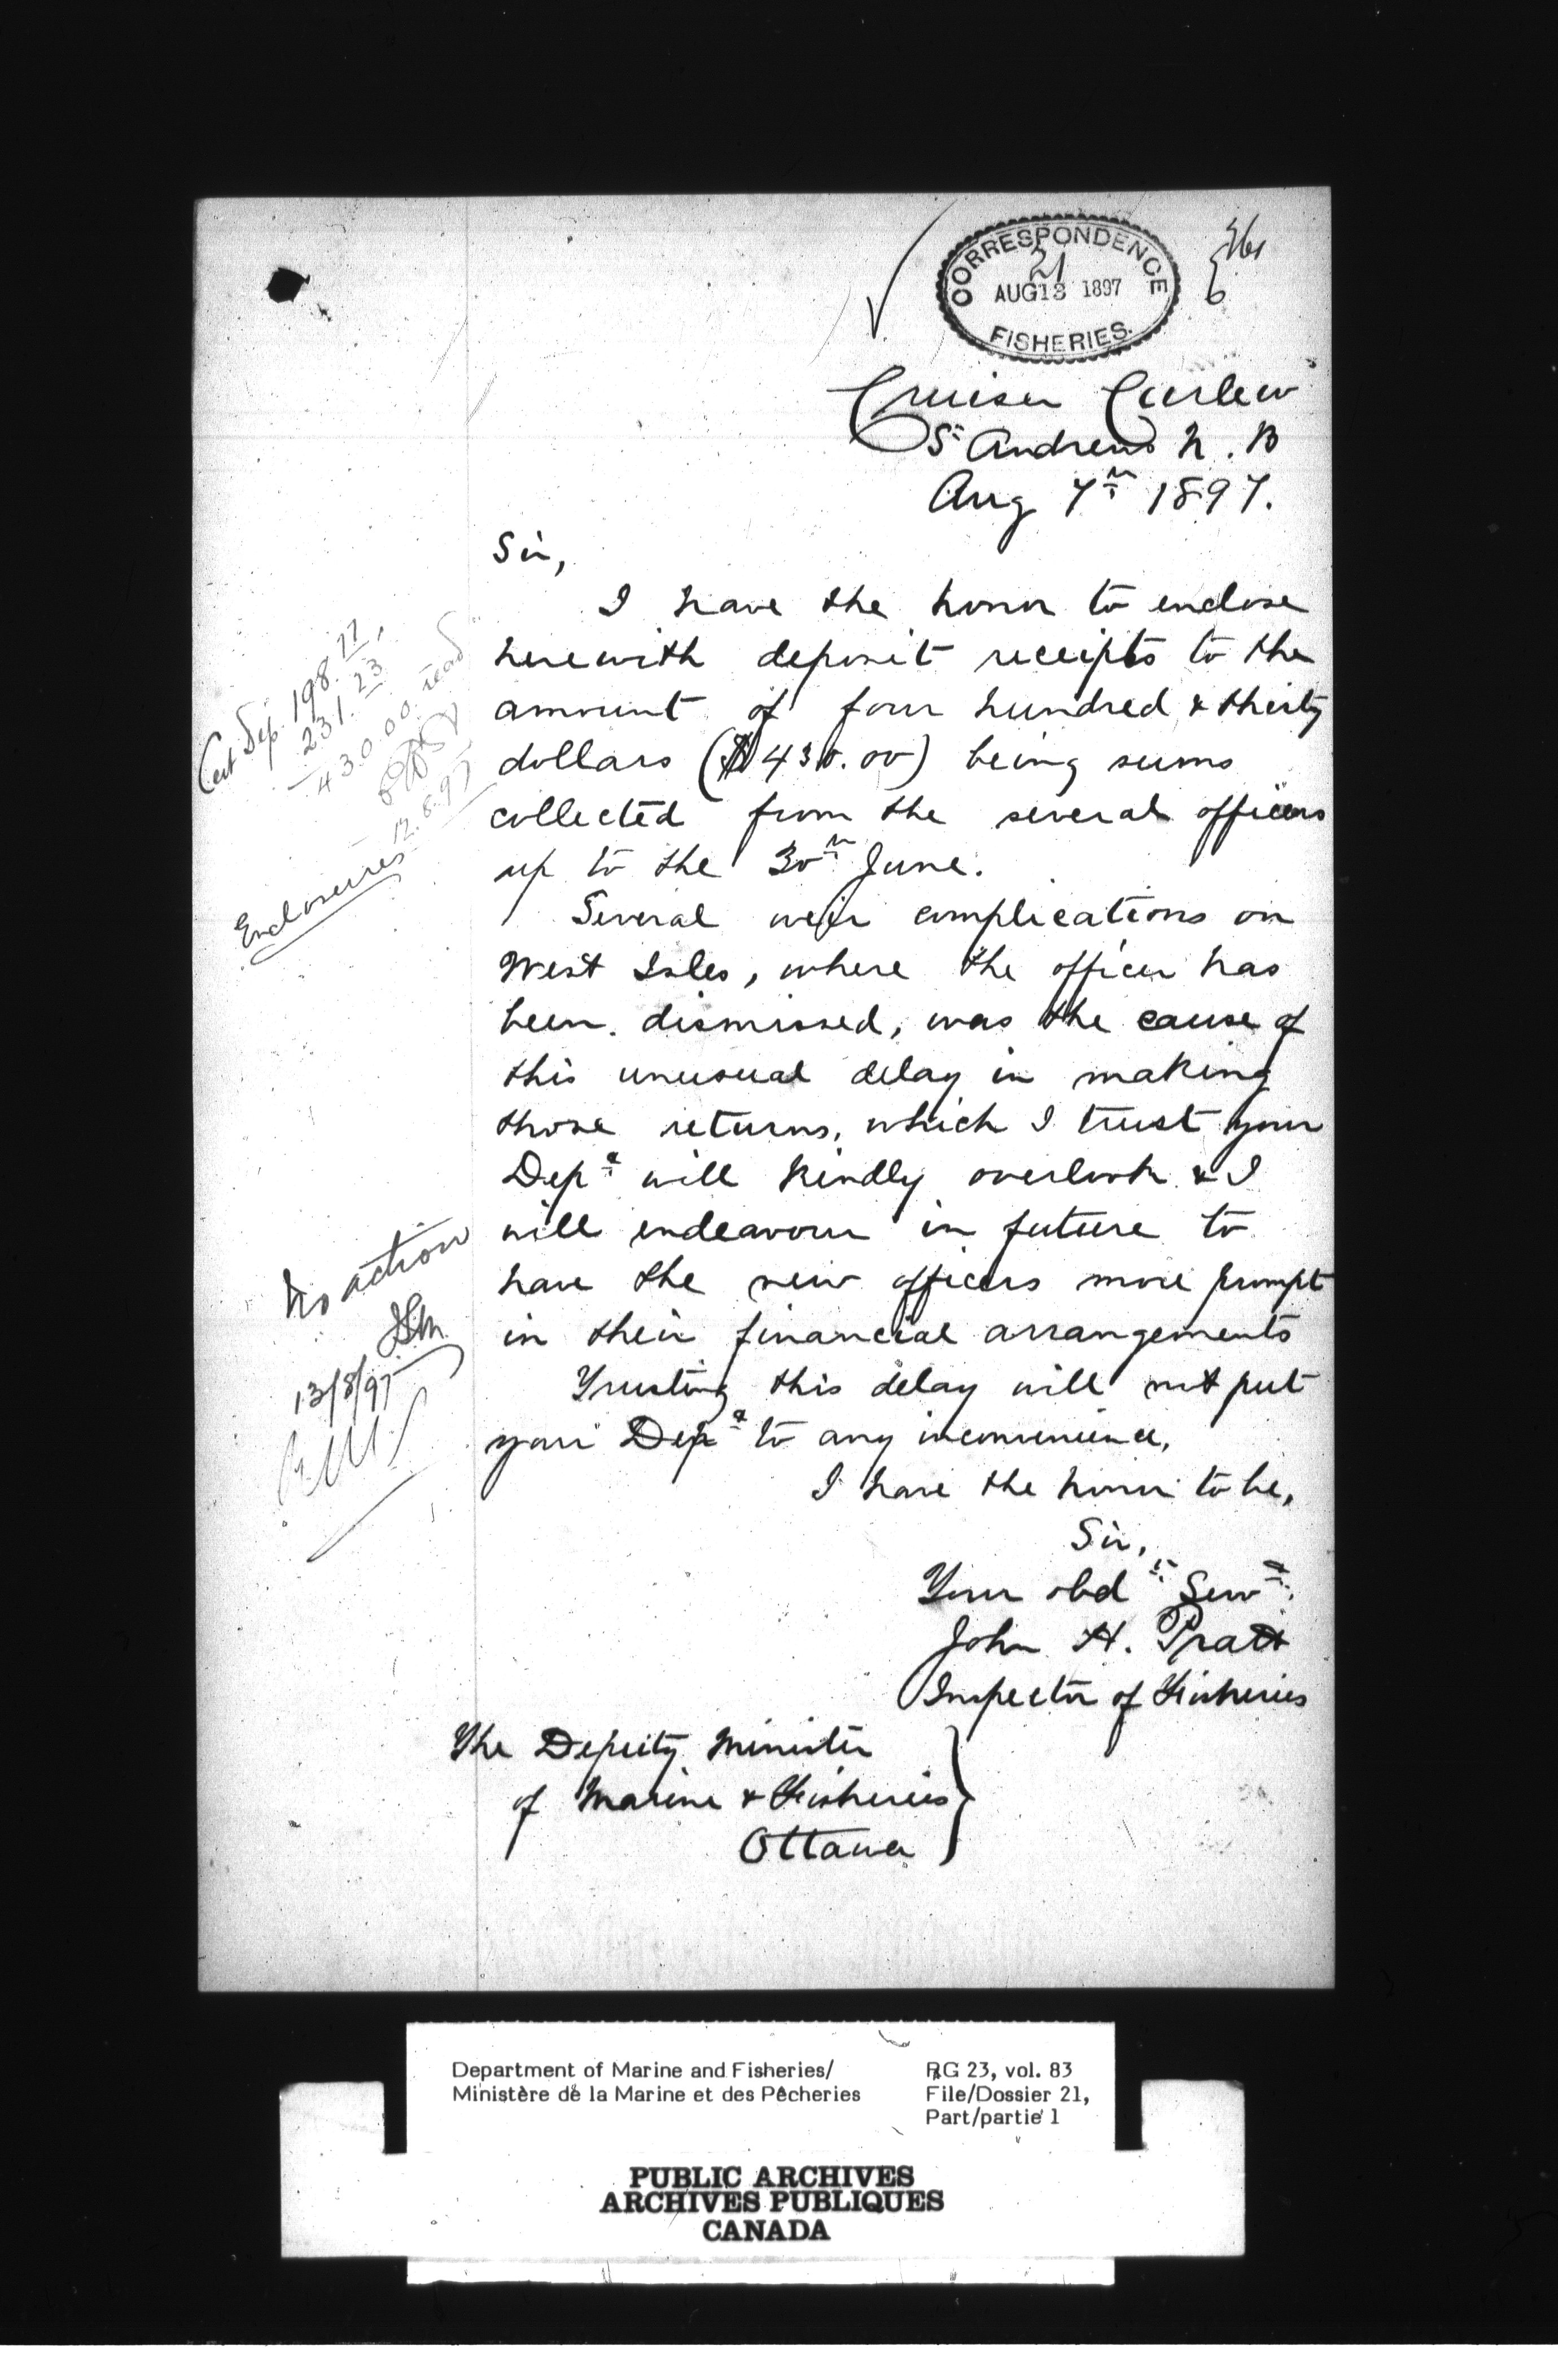 CORRESPONDENCE
21
AUG 13 1897
FISHERIES.
Cruiser Curlew
St Andrews N. B
Aug 7th 1897.
Sir,
I have the honor to enclose
herewith deposit receipts to the
amount of four hundred & thirty
dollars ($430.00) being sums
collected from the several officers
up to the 30th June.
Several weir complications on
West Isles, where the officer has
been dismissed, was the cause of
this unusual delay in making
those returns, which I trust your
Dept will kindly overlook & I
will endeavour in future to
have the new officers more prompt
in their financial arrangements
Trusting this delay will not put
your Dept to any inconvenience,
I have the honor to be,
Sir,
Your obdt Servt
John H. Pratt
Inspector of Fisheries
The Deputy Minister
of Marine & Fisheries
Ottawa
Cert Dep. 198.77
231.23
430.00 recd
12.8.97
Enclosures
No action
13/8/97
Department of Marine and Fisheries/
Ministère de la Marine et des Pêcheries
RG 23, vol. 83
File/Dossier 21,
Part/partie 1
PUBLIC ARCHIVES
ARCHIVES PUBLIQUES
CANADA